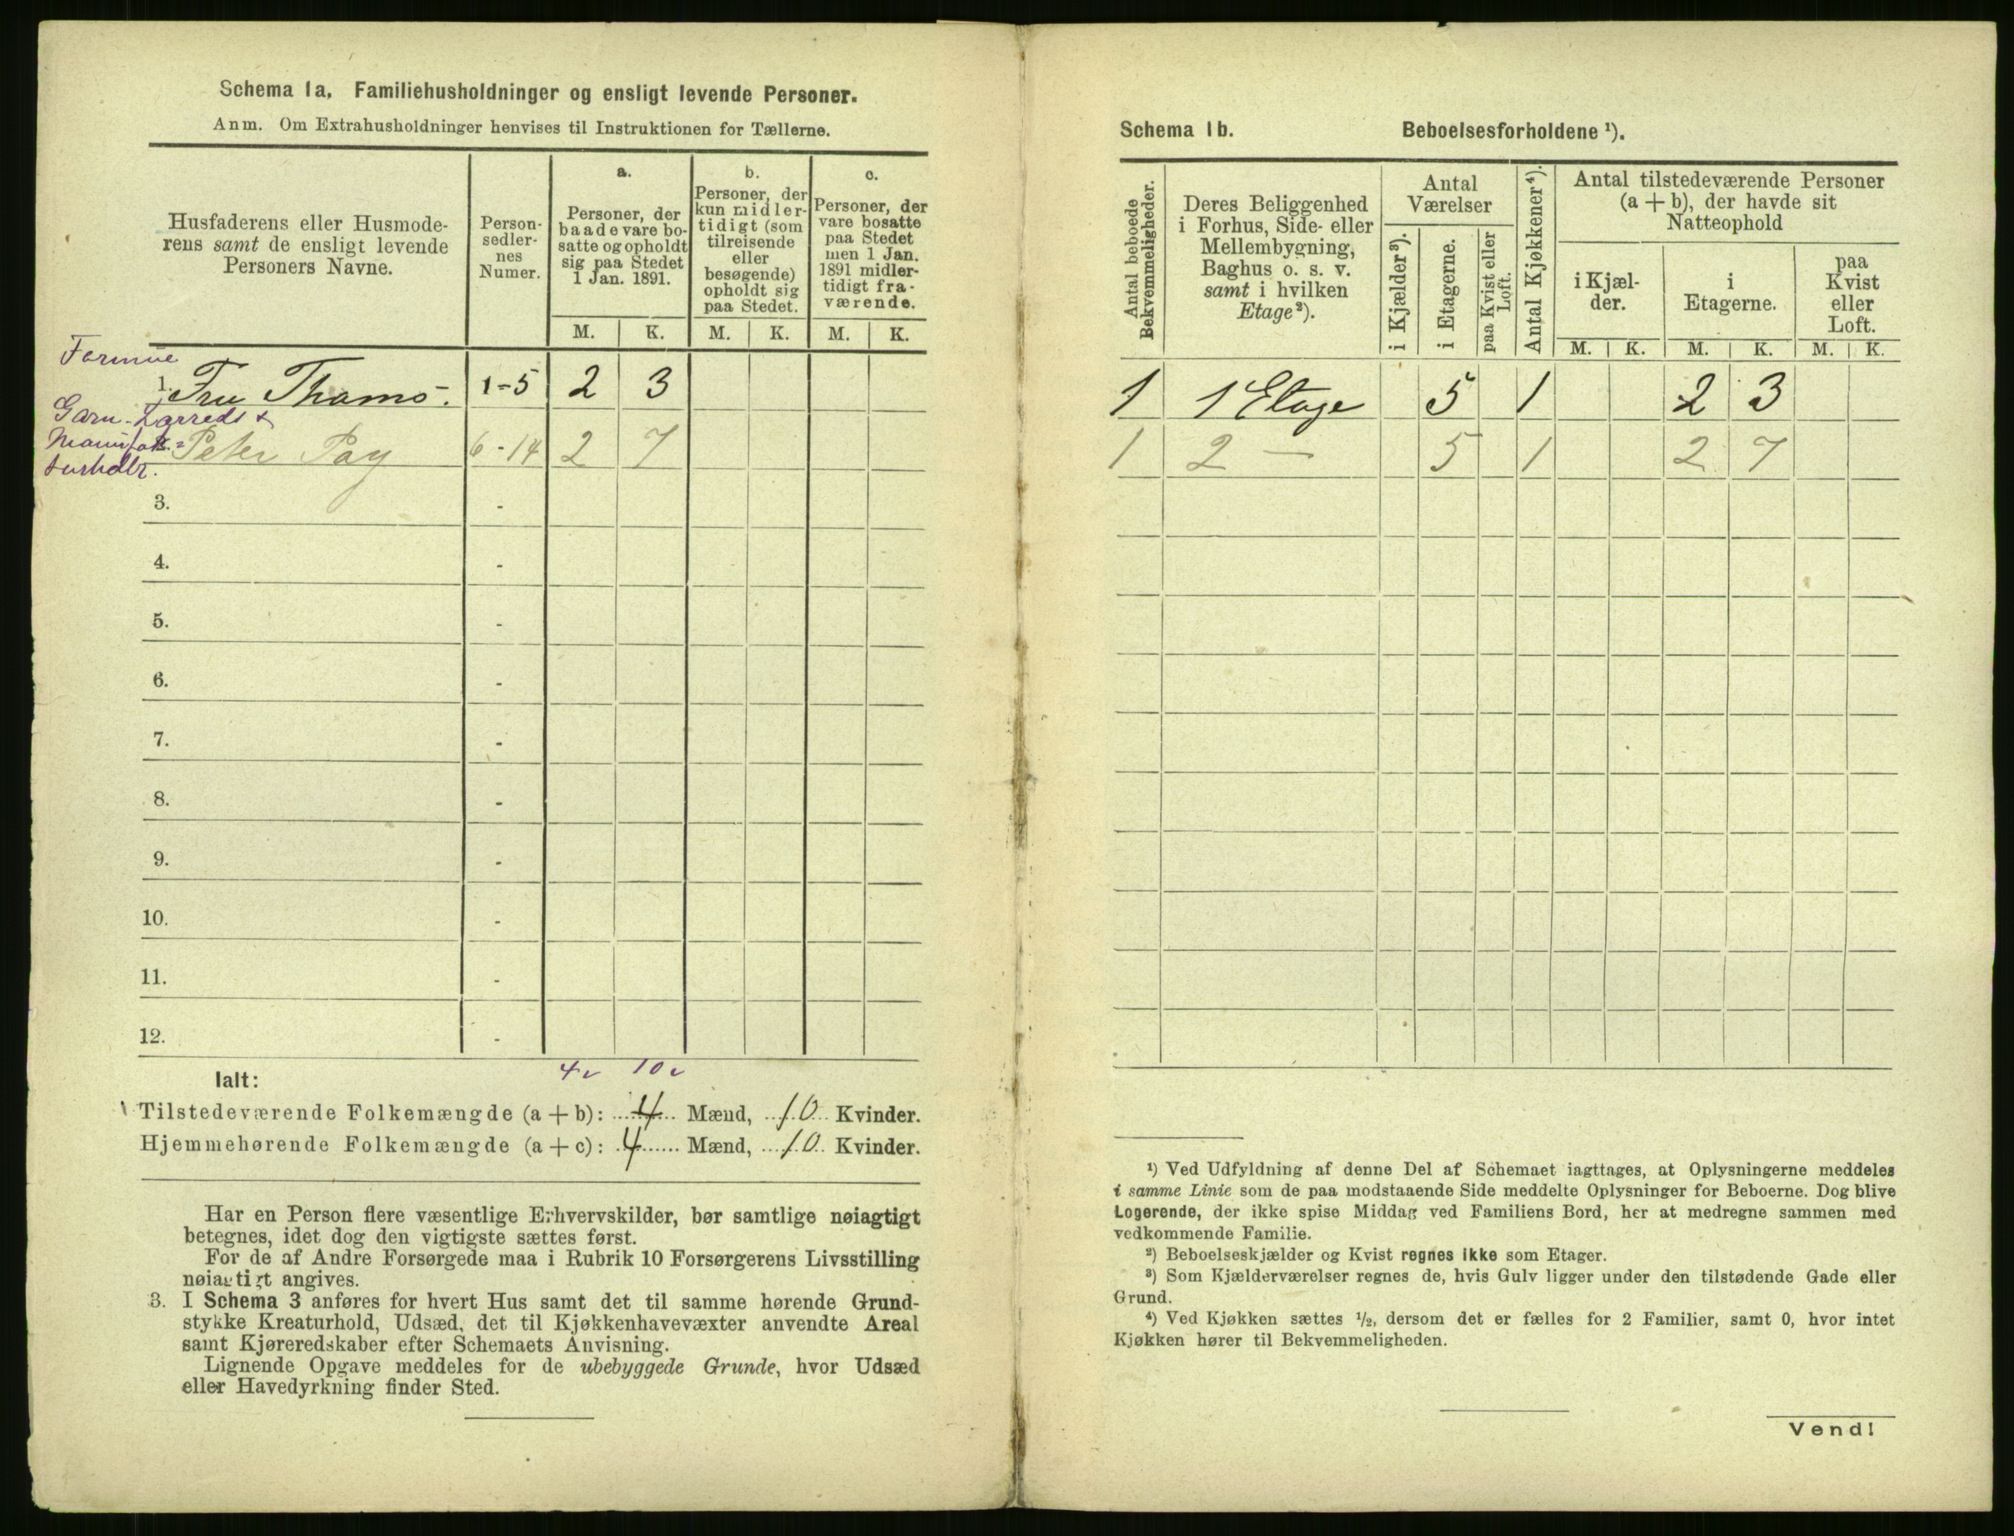 Schema 1a. Familiehusholdninger og ensligt levende Personer.
Anm. Om Extrahusholdninger henvises til Instruktionen for Tællerne.
Husfaderens eller Husmoderens samt de ensligt levende Personers Navne.
Personsedlernes Numer.
a.
Personer, der baade vare bosatte og opholdt sig paa Stedet 1 Jan. 1891.
b.
Personer, der kun midlertidigt (som tilreisende eller besøgende) opholdt sig paa Stedet.
c.
Personer, der vare bosatte paa Stedet men 1 Jan. 1891 midlertidigt fraværende.
M. K. M. K. M. K.
Formue
1. Fru Thams. 1-5 2 3
Garn- Lærreds &
Manufak=
turhdlr.
Peter Pay 6-14 2 7
3. -
4. -
5. -
6. -
7. -
8. -
9. -
10. -
11. -
12. -
4 10
Ialt:
Tilstedeværende Folkemængde (a + b): 4 Mænd, 10 Kvinder.
Hjemmehørende Folkemængde (a + c): 4 Mænd, 10 Kvinder.
Har en Person flere væsentlige Erhvervskilder, bør samtlige nøiagtigt
betegnes, idet dog den vigtigste sættes først.
For de af Andre Forsørgede maa i Rubrik 10 Forsørgerens Livsstilling
nøiagtigt angives.
3. I Schema 3 anføres for hvert Hus samt det til samme hørende Grund-
stykke Kreaturhold, Udsæd, det til Kjøkkenhavevæxter anvendte Areal
samt Kjøreredskaber efter Schemaets Anvisning.
Lignende Opgave meddeles for de ubebyggede Grunde, hvor Udsæd
eller Havedyrkning finder Sted.
Schema 1b. Beboelsesforholdene ¹).
Antal beboede Bekvemmeligheder.
Deres Beliggenhed i Forhus, Side- eller Mellembygning, Baghus o. s. v. samt i hvilken Etage²).
Antal Værelser
i Kjælder³).
i Etagerne.
paa Kvist eller Loft.
Antal Kjøkkener⁴).
Antal tilstedeværende Personer (a + b), der havde sit Natteophold
i Kjælder.
i Etagerne.
paa Kvist eller Loft.
M. K. M. K. M. K.
1 1 Etage 5 1 2 3
1 2 — 5 1 2 7
¹) Ved Udfyldning af denne Del af Schemaet iagttages, at Oplysningerne meddeles
i samme Linie som de paa modstaaende Side meddelte Oplysninger for Beboerne. Dog blive
Logerende, der ikke spise Middag ved Familiens Bord, her at medregne sammen med
vedkommende Familie.
²) Beboelseskjælder og Kvist regnes ikke som Etager.
³) Som Kjælderværelser regnes de, hvis Gulv ligger under den tilstødende Gade eller
Grund.
⁴) Ved Kjøkken sættes ½, dersom det er fælles for 2 Familier, samt 0, hvor intet
Kjøkken hører til Bekvemmeligheden.
Vend!